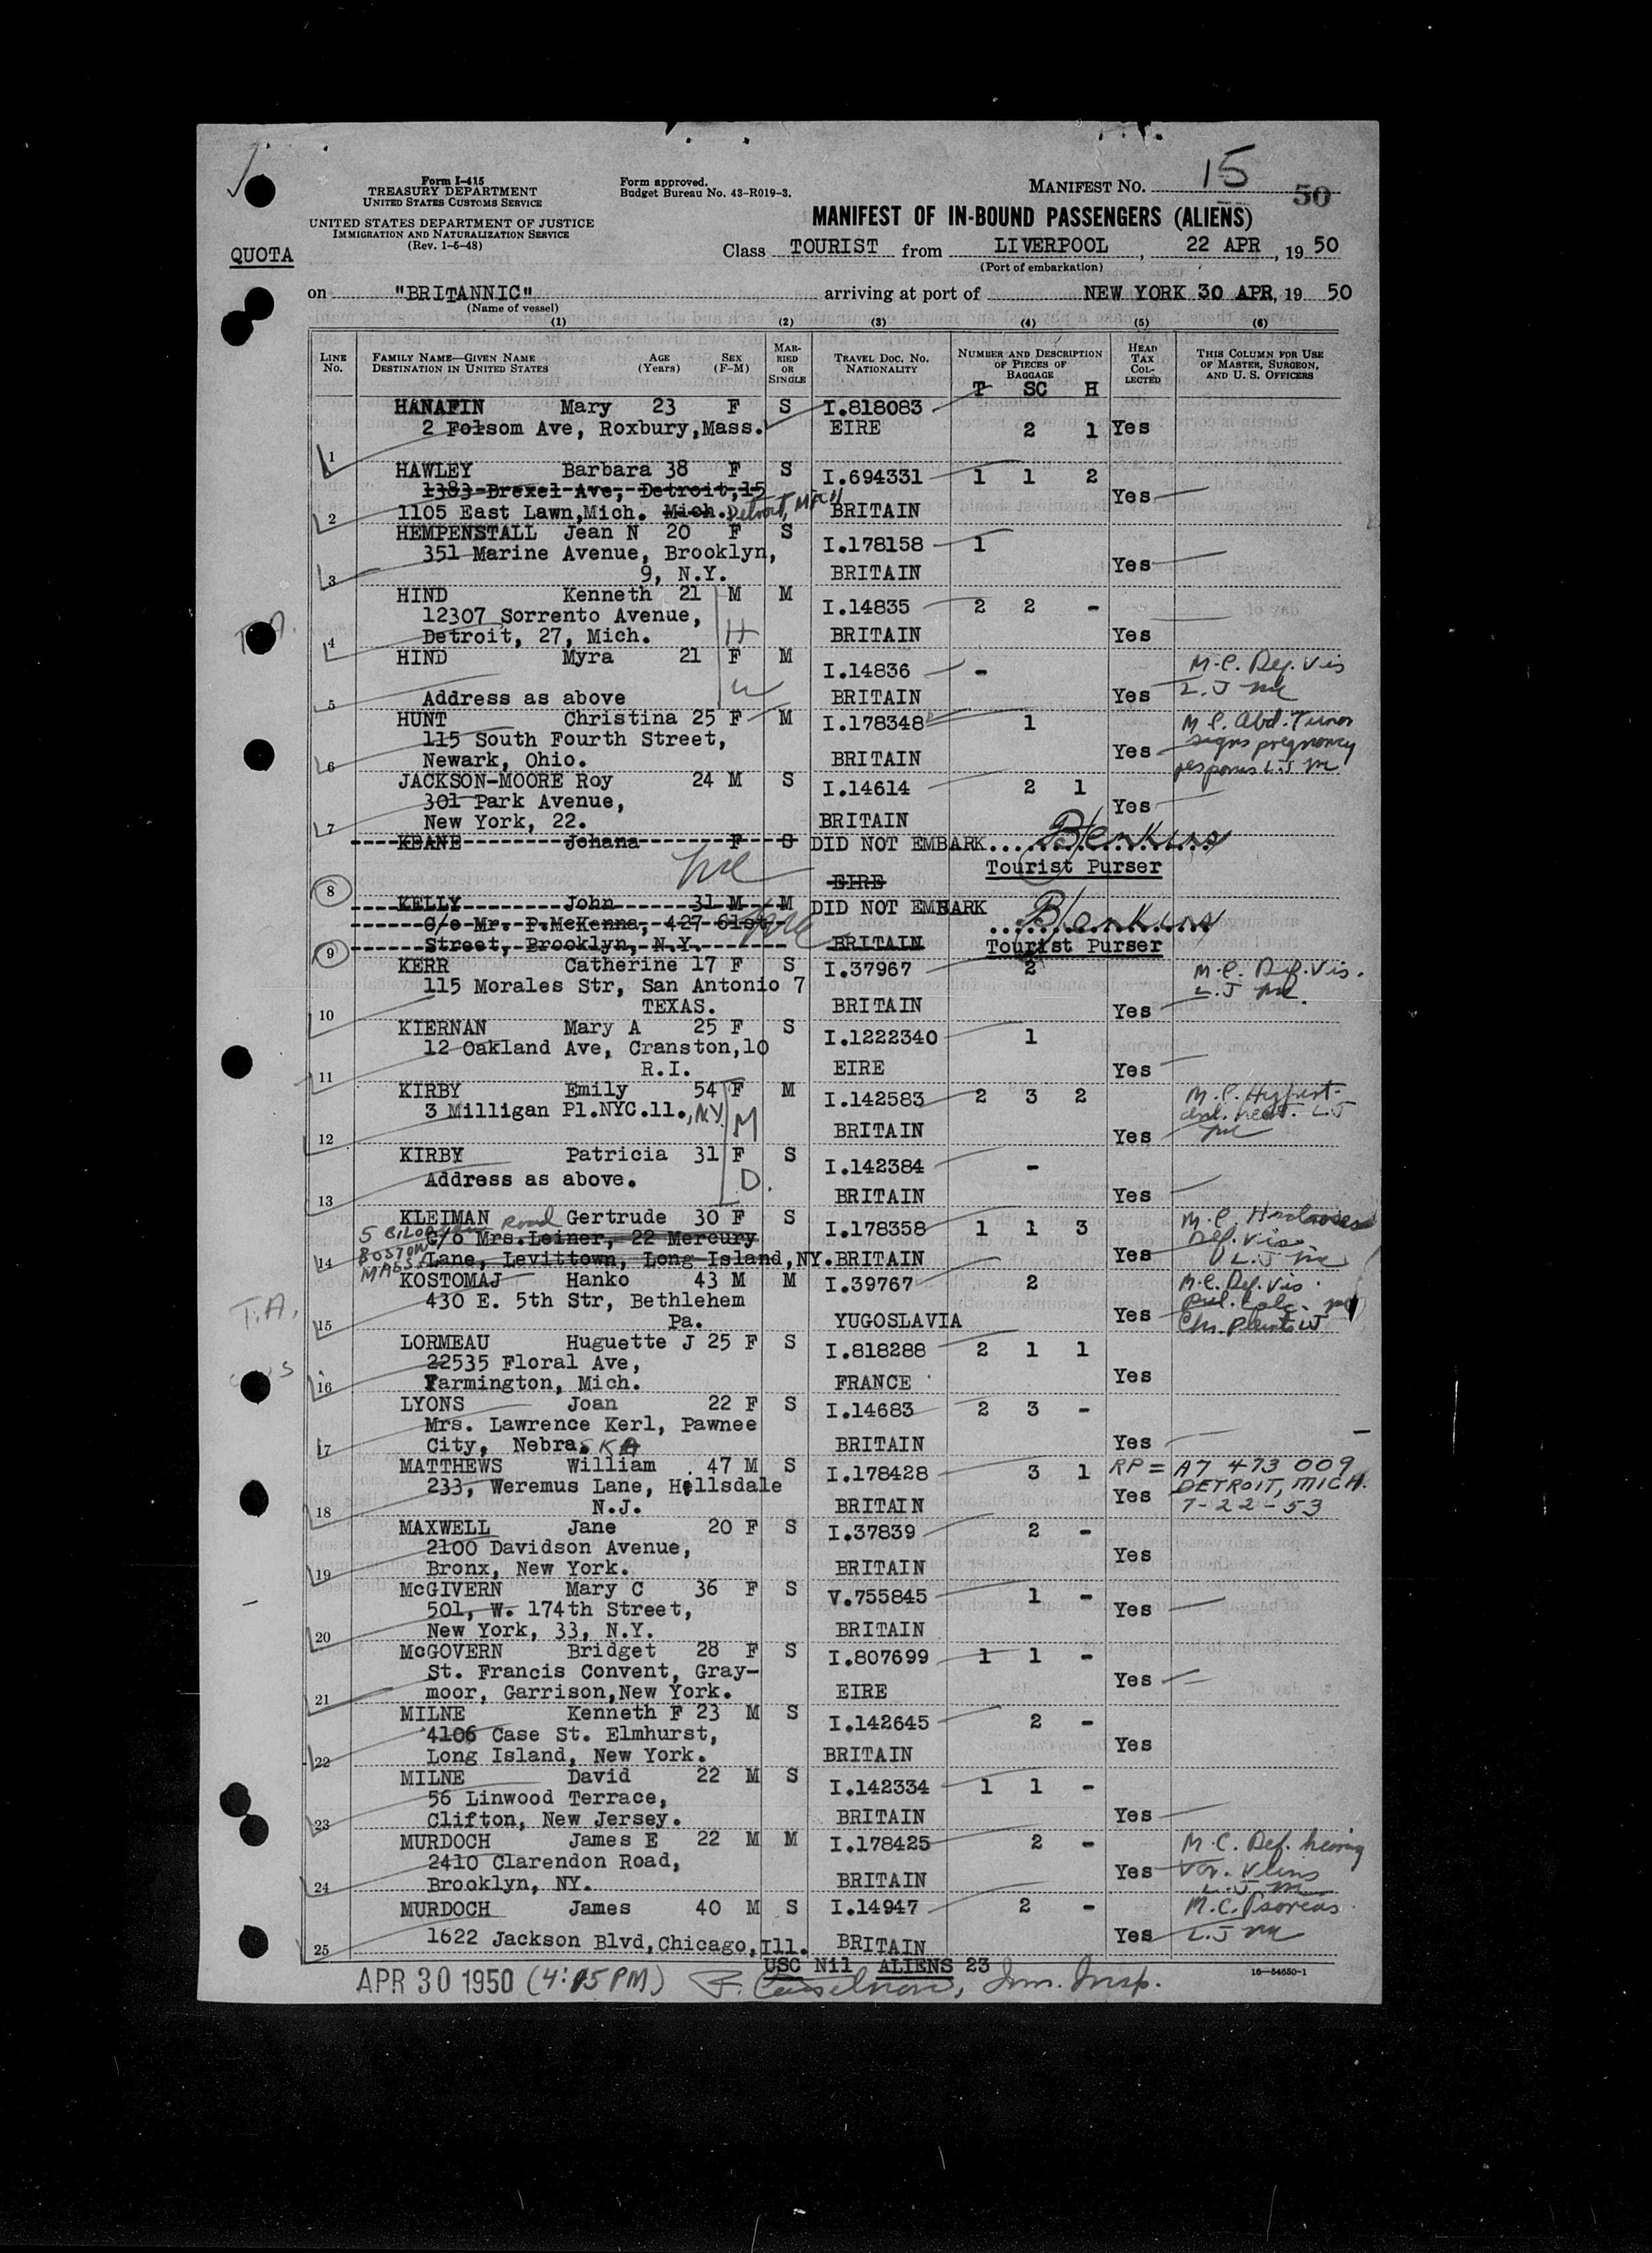 15
50
Form I-415
TREASURY DEPARTMENT
UNITED STATES CUSTOMS SERVICE
UNITED STATES DEPARTMENT OF JUSTICE
IMMIGRATION AND NATURALIZATION SERVICE
(Rev. 1-5-48)
Form approved.
Budget Bureau No. 43-R019-3.
MANIFEST NO.
MANIFEST OF IN-BOUND PASSENGERS (ALIENS)
QUOTA
Class TOURIST from LIVERPOOL, 22 APR, 19 50
(Port of embarkation)
on "BRITANNIC" arriving at port of NEW YORK 30 APR, 19 50
(Name of vessel)
(1) (2) (3) (4) (5) (6)
LINE NO.
FAMILY NAME—GIVEN NAME
DESTINATION IN UNITED STATES
AGE (Years)
SEX (F-M)
MARRIED OR SINGLE
TRAVEL DOC. NO.
NATIONALITY
NUMBER AND DESCRIPTION OF PIECES OF BAGGAGE
T SC H
HEAD TAX COLLECTED
THIS COLUMN FOR USE OF MASTER, SURGEON, AND U. S. OFFICERS
HANAFIN Mary 23 F S I.818083
2 Folsom Ave, Roxbury,Mass. EIRE 2 1 Yes
1
HAWLEY Barbara 38 F S I.694331 1 1 2
1383 Drexel Ave, Detroit,15 Yes
2 1105 East Lawn,Mich. Mich. Detroit, MICH BRITAIN
HEMPENSTALL Jean N 20 F S I.178158 1
351 Marine Avenue, Brooklyn, Yes
3 9, N.Y. BRITAIN
HIND Kenneth 21 M M I.14835 2 2 -
12307 Sorrento Avenue,
4 Detroit, 27, Mich. H BRITAIN Yes
T.A.
HIND Myra 21 F M I.14836 - M.C. Def. Vis
L.J
5 Address as above W BRITAIN Yes
HUNT Christina 25 F M I.178348 1 M.C. Abd. Tumor
115 South Fourth Street, signs pregnancy
6 Newark, Ohio. BRITAIN Yes L.J
JACKSON-MOORE Roy 24 M S I.14614 2 1
301 Park Avenue, Yes
7 New York, 22. BRITAIN
KEANE Johana F S DID NOT EMBARK....
Tourist Purser
8 EIRE
KELLY John 31 M M DID NOT EMBARK
C/o Mr. P.McKenna, 427 61st
9 Street, Brooklyn, N.Y. BRITAIN Tourist Purser
KERR Catherine 17 F S I.37967 2 M.C. Def. Vis.
115 Morales Str, San Antonio 7 L.J
10 TEXAS. BRITAIN Yes
KIERNAN Mary A 25 F S I.1222340 1
12 Oakland Ave, Cranston,10
11 R.I. EIRE Yes
KIRBY Emily 54 F M I.142583 2 3 2 M.C. Hypert-
3 Milligan Pl.NYC.11.,N.Y. M L.J
12 BRITAIN Yes
KIRBY Patricia 31 F S I.142384 -
Address as above. D.
13 BRITAIN Yes
KLEIMAN Gertrude 30 F S I.178358 1 1 3 M.C.
5 Road C/o Mrs.Leiner, 22 Mercury Def. Vis
14 BOSTON MASS. Lane, Levittown, Long Island,NY. BRITAIN Yes L.J
KOSTOMAJ Hanko 43 M M I.39767 2 M.C. Def. Vis.
T.A. 430 E. 5th Str, Bethlehem
15 Pa. YUGOSLAVIA Yes
LORMEAU Huguette J 25 F S I.818288 2 1 1
22535 Floral Ave,
16 Farmington, Mich. FRANCE Yes
LYONS Joan 22 F S I.14683 2 3 -
Mrs. Lawrence Kerl, Pawnee
17 City, NebraSKA BRITAIN Yes
MATTHEWS William 47 M S I.178428 3 1 RP = A7 473 009
233, Weremus Lane, Hillsdale DETROIT, MICH.
18 N.J. BRITAIN Yes 7-22-53
MAXWELL Jane 20 F S I.37839 2 -
2100 Davidson Avenue,
19 Bronx, New York. BRITAIN Yes
McGIVERN Mary C 36 F S V.755845 1 -
501, W. 174th Street, Yes
20 New York, 33, N.Y. BRITAIN
McGOVERN Bridget 28 F S I.807699 1 1 -
St. Francis Convent, Gray-
21 moor, Garrison,New York. EIRE Yes
MILNE Kenneth F 23 M S I.142645 2 -
4106 Case St. Elmhurst,
22 Long Island, New York. BRITAIN Yes
MILNE David 22 M S I.142334 1 1 -
56 Linwood Terrace,
23 Clifton, New Jersey. BRITAIN Yes
MURDOCH James E 22 M M I.178425 2 - M.C. Def. hearing
2410 Clarendon Road, Var. Veins
24 Brooklyn, NY. BRITAIN Yes L.J
MURDOCH James 40 M S I.14947 2 - M.C. Psoreas
25 1622 Jackson Blvd,Chicago,Ill. BRITAIN Yes L.J
USC Nil ALIENS 23
16—54650-1
APR 30 1950 (4:15PM) Imm. Insp.